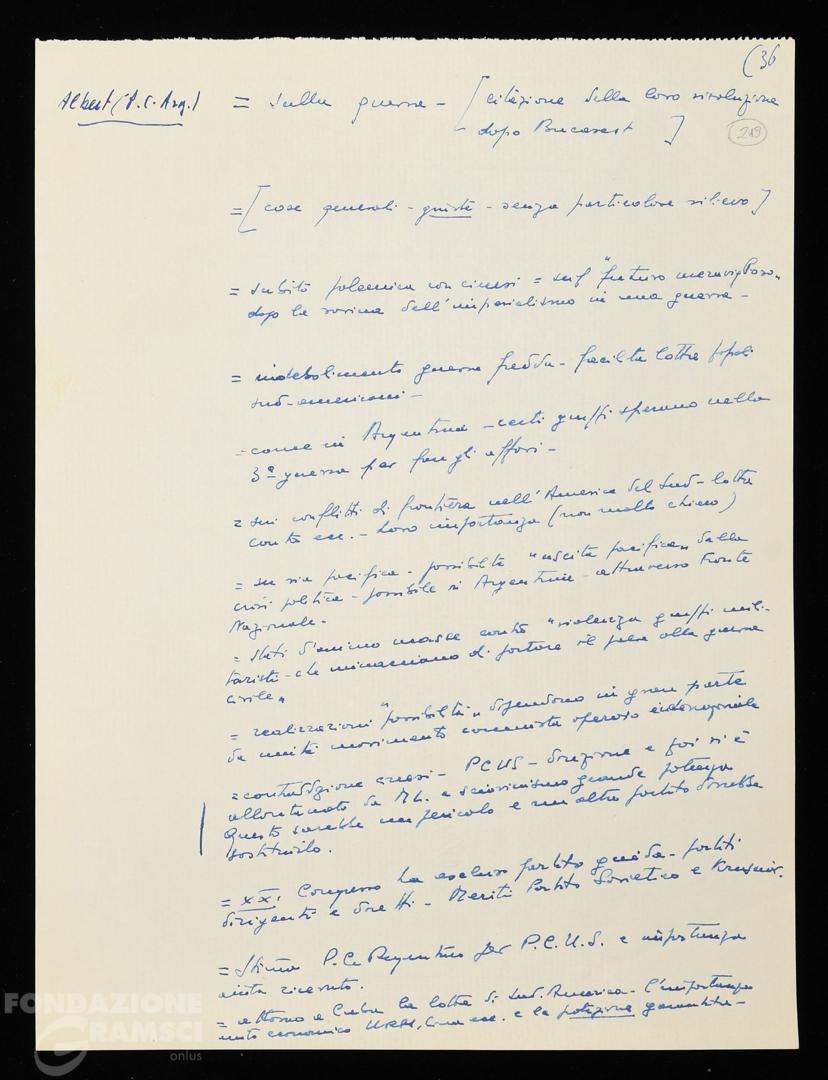 (36
Albert (P.C. Arg.) = sulla guerra - [citazione della loro risoluzione
dopo Bucarest]
219
= [cose generali - giuste - senza particolare rilievo]
= subito polemica con cinesi = sul "futuro meraviglioso"
dopo la rovina dell'imperialismo in una guerra -
= indebolimento guerra fredda - facilita lotta popoli
sud-americani -
- come in Argentina - certi gruppi sperano nella
3ª guerra per fare gli affari -
= sui conflitti di frontiera nell'America del Sud - lotta
contro ecc. - Loro importanza (non molto chiaro)
= su via pacifica - possibilità "uscita pacifica" dalla
crisi politica - possibile in Argentina - attraverso Fronte
Nazionale -
= stati d'animo masse contro "violenza gruppi mili-
taristi - che minacciano di portare il paese alla guerra
civile"
= realizzazioni "possibilità" dipendono in gran parte
da unità movimento comunista operaio
= contraddizione cinesi - PCUS - direzione e poi si è
allontanato da M.L. e sciovinismo grande potenza
Questo sarebbe un pericolo e un altro partito dovrebbe
sostituirlo.
= XX: Congresso ha escluso partito guida - partiti
dirigenti e diretti - Meriti Partito Sovietico e Krusciov.
= Stima P.C. Argentino per P.C.U.S. e importanza
aiuto ricevuto.
= attorno a Cuba la lotta di Sud. America - L'importanza
aiuto economico URSS, Cina ecc. e la posizione
FONDAZIONE
GRAMSCI
onlus